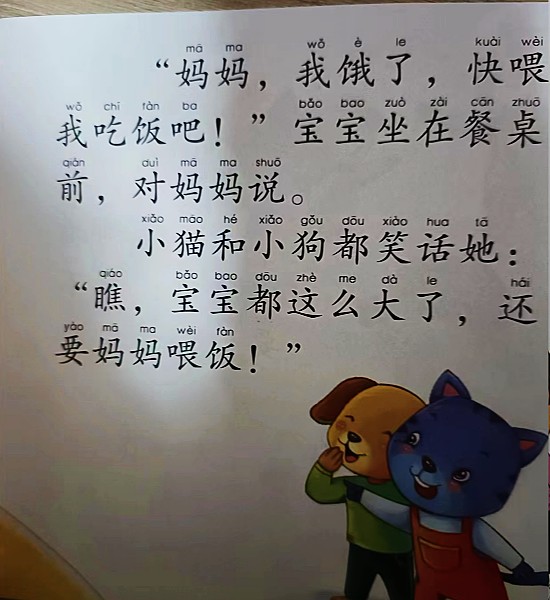 mā ma wǒ è le kuài wèi
“妈妈，我饿了，快喂
wǒ chī fàn ba bǎo bao zuò zài cān zhuō
我吃饭吧！”宝宝坐在餐桌
qián duì mā ma shuō
前，对妈妈说。
xiǎo māo hé xiǎo gǒu dōu xiào hua tā
小猫和小狗都笑话她：
qiáo bǎo bao dōu zhè me dà le hái
“瞧，宝宝都这么大了，还
yào mā ma wèi fàn
要妈妈喂饭！”